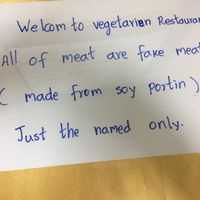 Welcom to vegetarian Restauran
All of meat are fake meat
( made from soy portin )
Just the named only.